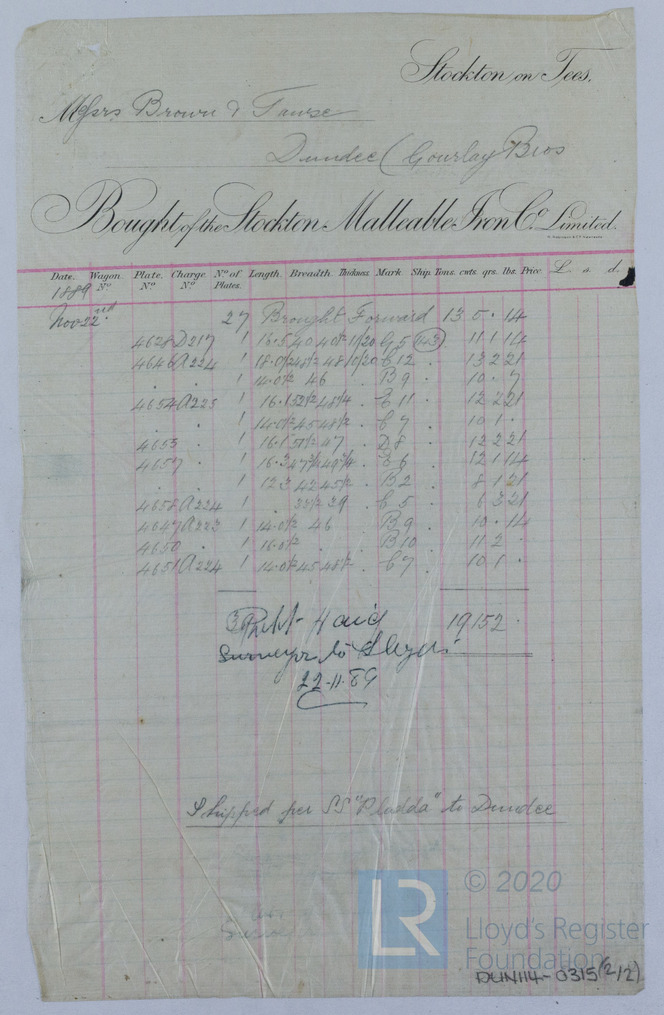 Stockton on Tees.
Messrs Brown & Tawse
Dundee (Gourlay Bros
Bought of the Stockton Malleable Iron Co. Limited.
Date. Wagon No. Plate. No. Charge. No. No. of Plates. Length. Breadth. Thickness. Mark Ship. Tons. cwts. qrs. lbs. Price. £ s. d.
1889
Nov 22nd 27 Brought Forward 13 0 . 14
4628 D217 1 16.5 40 40½ 11/20 G5 143 11 1 14
4646 A224 1 18.0½ 48 10/20 C12 . 13 2 21
. . 1 14.0½ 46 B9 . 10 . 7
4654 A225 1 16.1 C11 . 12 2 21
. . 1 14.0½ 45 48½ C7 . 10 1 .
4653 . 1 16.1 51½ 47 D8 12 2 21
4657 . 1 16.3 47¾ 49¾ E6 12 1 14
. . 1 12 3 42 45½ B2 . 8 1 21
4658 A224 1 . 33½ 39 C5 . 6 3 21
4647 A223 1 14.0½ 46 B9 . 10 . 14
4650 . 1 16.0½ B10 . 11 2 .
4651 A224 1 14.0½ 45 48½ C7 . 10 1 .
39 19 15 2 .
Robt Haig
Surveyor to Lloyds
22-11-89
Shipped per SS "Pladda" to Dundee
LR © 2020
Lloyd's Register
Foundation
DUN114-0315(2/2)